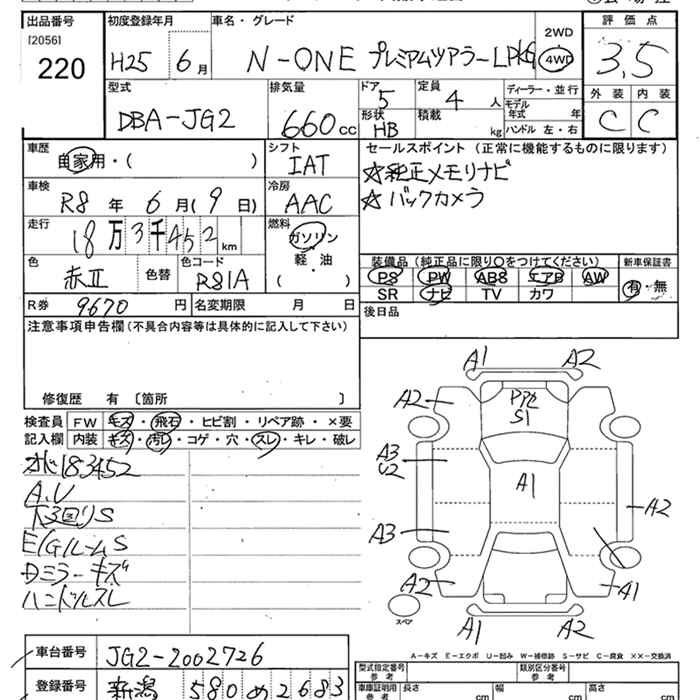 出品番号
[2056]
220
初度登録年月
H25 6月
車名・グレード
N-ONE プレミアムツアラーLPKG
2WD
4WD
評価点
3.5
外装 内装
C C
型式
DBA-JG2
排気量
660cc
ドア
5
形状
HB
定員
4人
積載
kg
ディーラー・並行
モデル
年式 年
ハンドル 左・右
車歴
自家用・( )
シフト
IAT
セールスポイント (正常に機能するものに限ります)
☆純正メモリナビ
☆バックカメラ
車検
R8年 6月(9日)
冷房
AAC
走行
18万3千452km
燃料
ガソリン
軽・油
( )
色
赤II
色替
色コード
R81A
装備品(純正品に限り〇をつけてください)
PS PW ABS エアB AW
SR ナビ TV カワ
新車保証書
有・無
R券 9670円
名変期限 月 日
後日品
注意事項申告欄(不具合内容等は具体的に記入して下さい)
修復歴 有 〔箇所 〕
検査員 FW キズ・飛石・ヒビ割・リペア跡・×要
記入欄 内装 キズ・汚レ・コゲ・穴・スレ・キレ・破レ
オド183452
A.U
下回りS
E/GルームS
Dミラーキズ
ハンドルスレ
A1 A2
A2
PPC
S1
A3
U2
A1
A2
A3
A2
A1
スペア
A1 A2
A-キズ E-エクボ U-凹み W-補修跡 S-サビ C-腐食 ××-交換済
車台番号 JG2-2002726
登録番号 新潟 580 め 2683
型式指定番号
参考
類別区分番号
参考
車庫証明用
参考
長さ cm
幅 cm
高さ cm